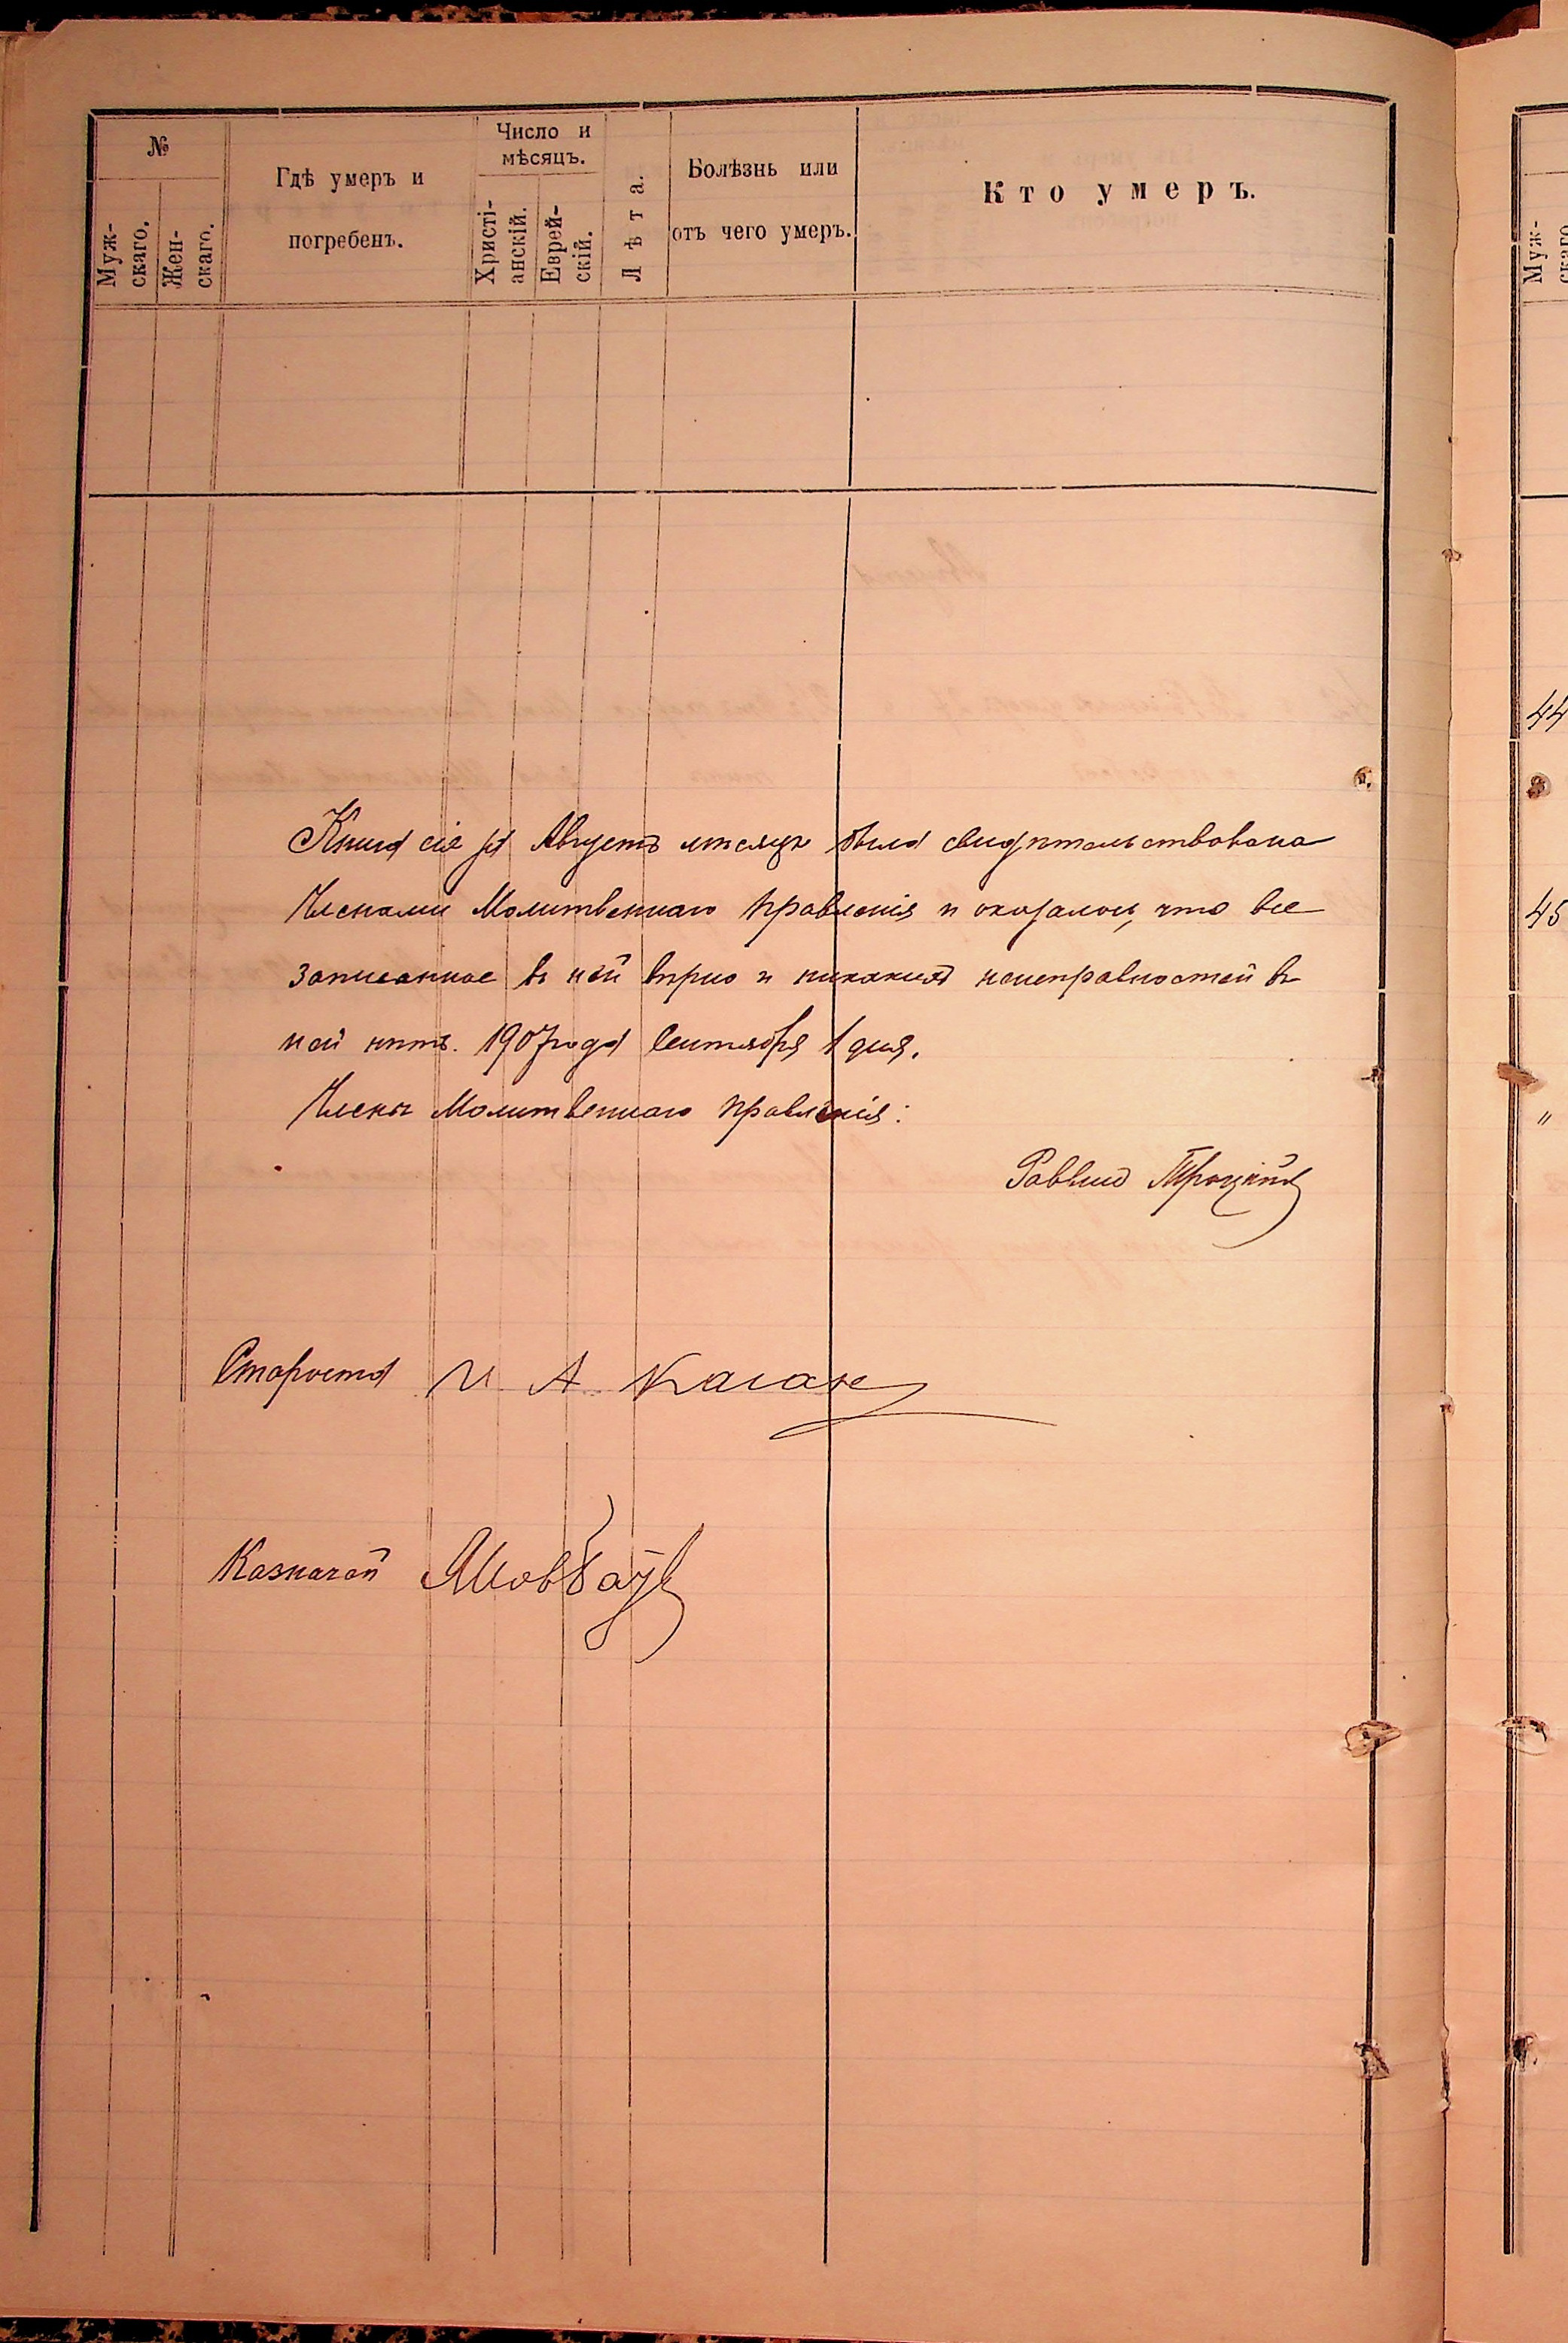 №
Муж-
скаго.
Жен-
скаго.
Гдѣ умеръ и
погребенъ.
Число и
мѣсяцъ.
Христі-
анскій.
Еврей-
скій.
Лѣта.
Болѣзнь или
отъ чего умеръ.
Кто умеръ.
Книга сія за Августъ мѣсяцъ была свидѣтельствована
Членами Молитвеннаго Правленія и оказалось, что все
записанное въ ней вѣрно и никакихъ неисправностей въ
ней нѣтъ. 1907 года Сентября 1 дня.
Члены Молитвеннаго Правленія:
Раввинъ Троцкій
Староста И А Каганъ
Казначей
Муж-
скаго
44
45
"